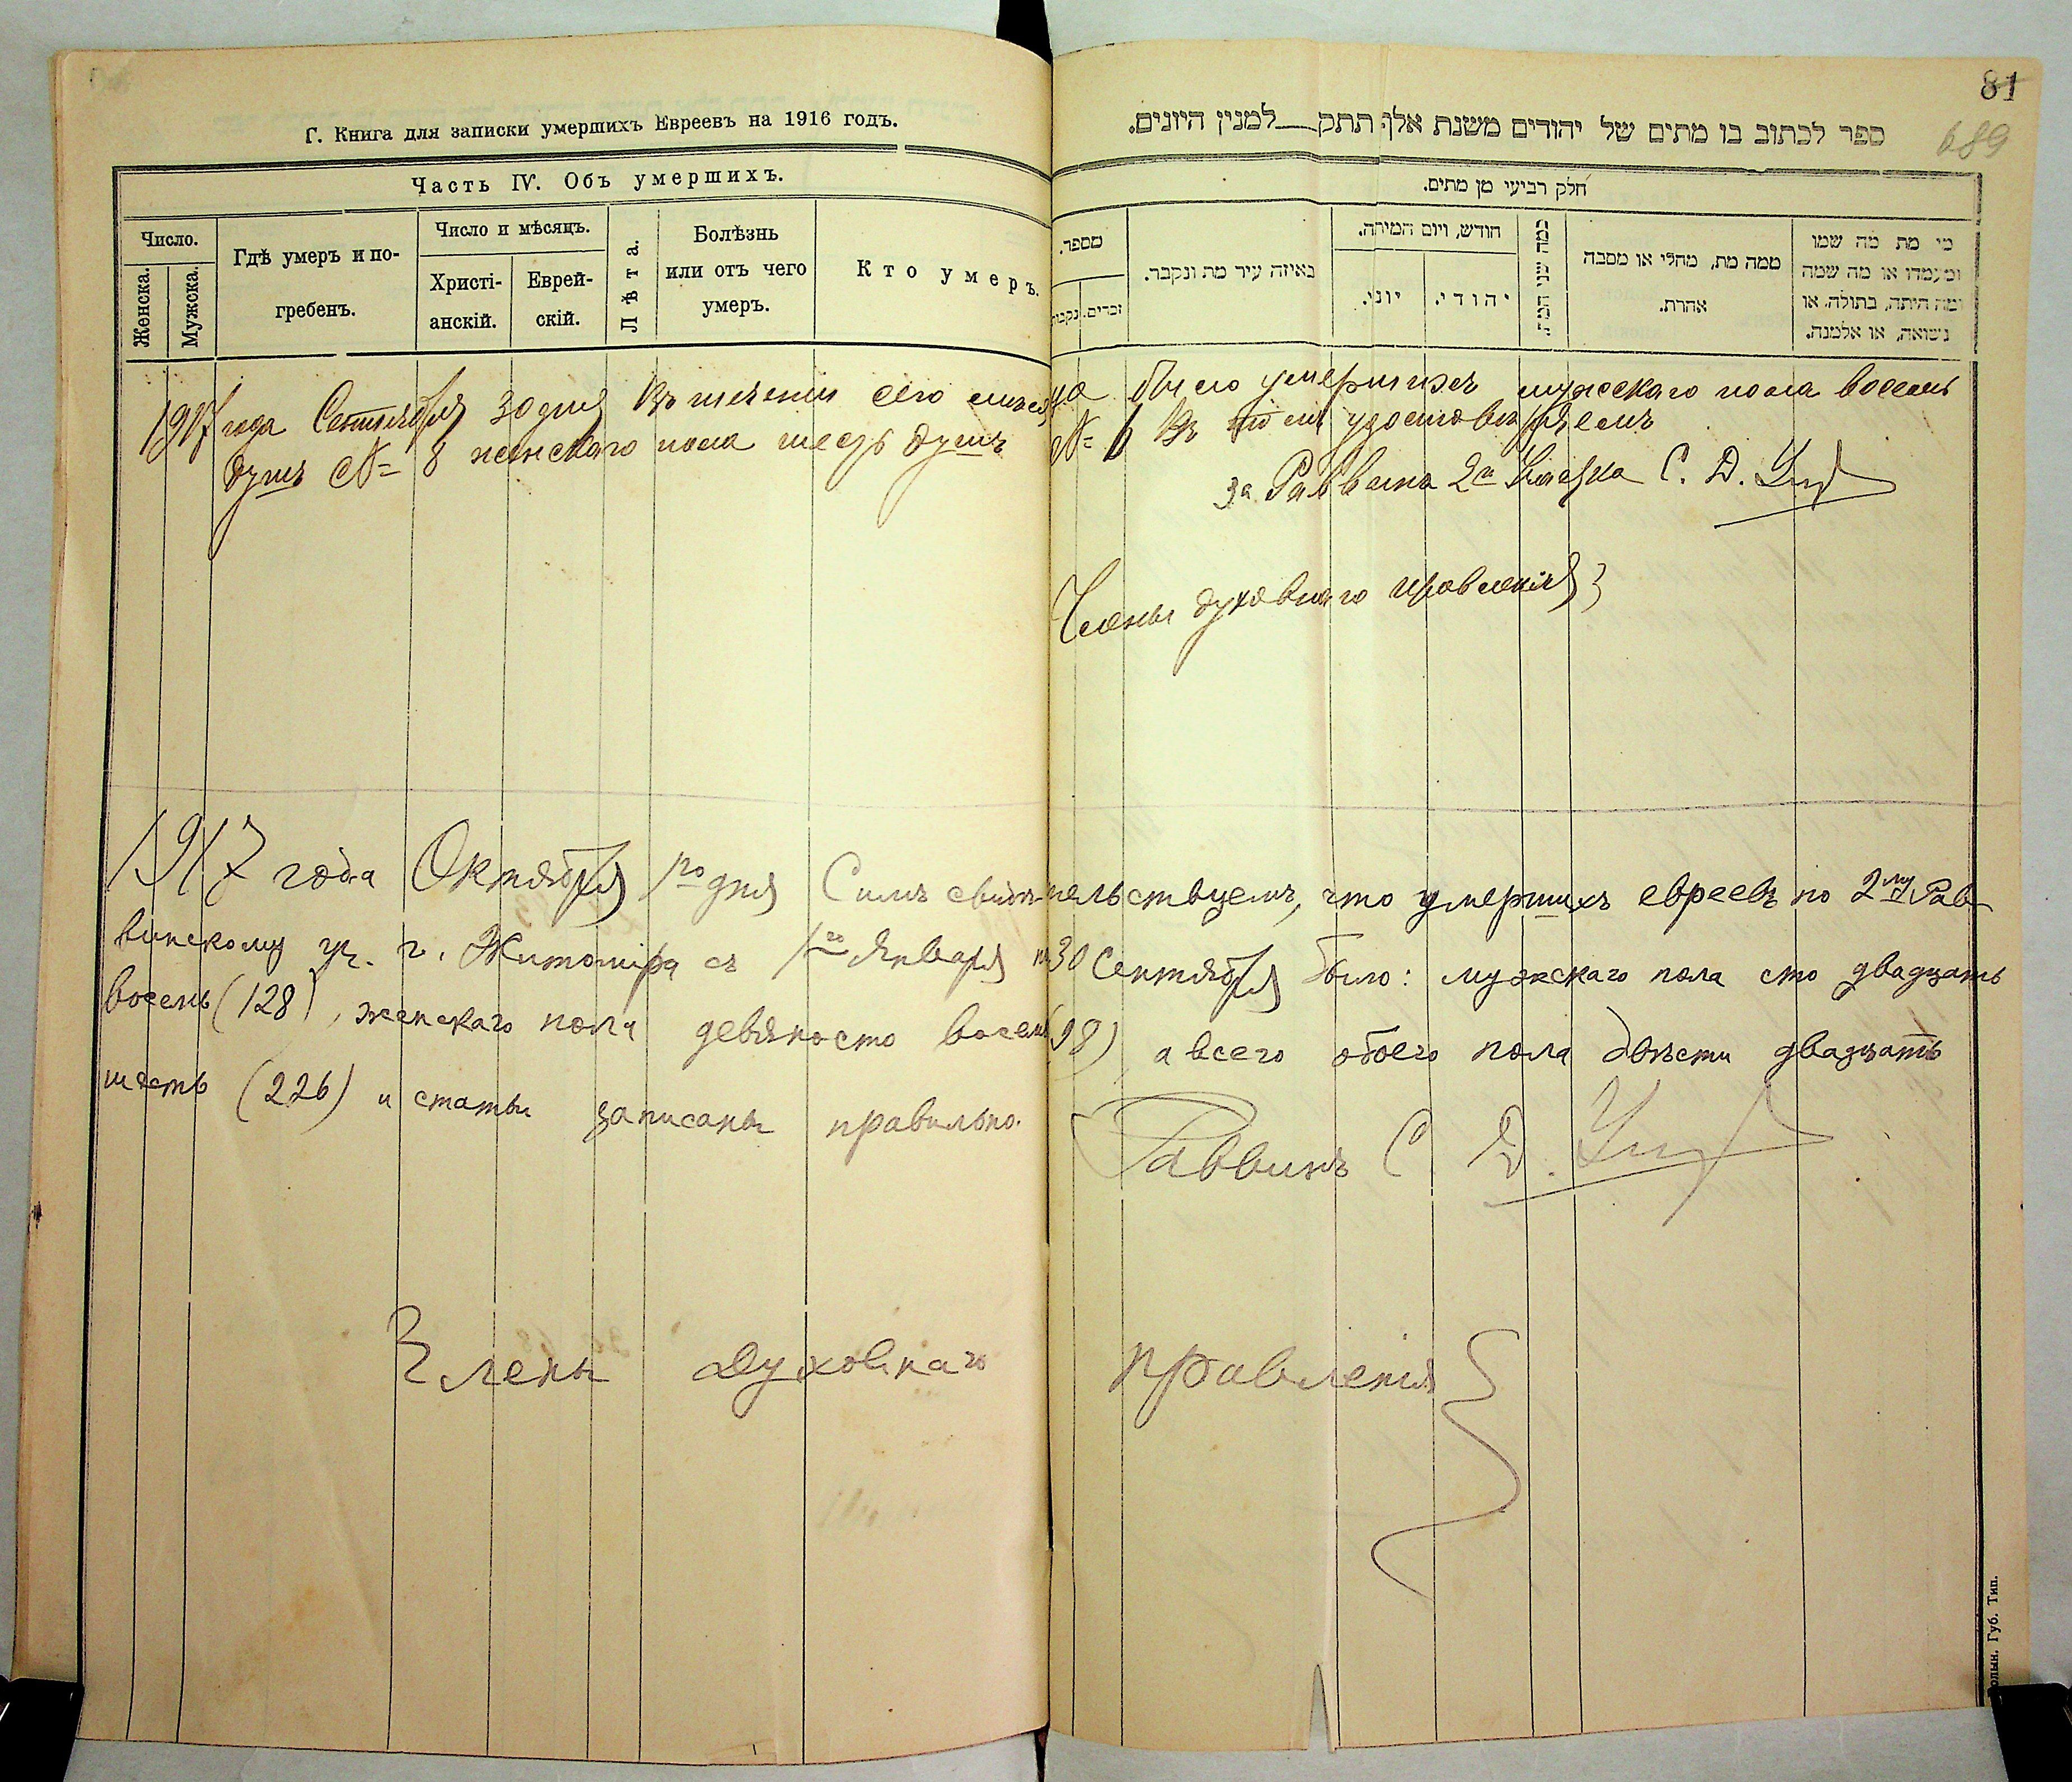 81
689
Г. Книга для записки умершихъ Евреевъ на 1916 годъ.
ספר לכתוב בו מתים של יהודים משנת אלף תתק למנין היונים.
Часть IV. Объ умершихъ.
חלק רביעי מן מתים.
Число.
Женска.
Мужска.
Гдѣ умеръ и по-
гребенъ.
Число и мѣсяцъ.
Христі-
анскій.
Еврей-
скій.
Лѣта.
Болѣзнь
или отъ чего
умеръ.
Кто умеръ.
מספר.
זכרים.
נקבות
באיזה עיר מת ונקבר.
חודש, ויום המיתה.
יוני.
יהודי.
כמה שני
ממה מת, מחלי או מסבה
אחרת.
מי מת מה שמו
ומעמדו או מה שמה
ומה היתה, בתולה, או
נשואה, או אלמנה.
1917 года Сентября 30 дня Въ теченіи сего мѣсяца было умершихъ мужскаго пола восемь
душъ № 8 женскаго пола шесть душъ № 6 въ томъ удостовѣряемъ
за Раввина 2го С. Д.
Члены духовнаго правленія}
1917 года Октября 1го дня Симъ свидѣтельствуемъ, что умершихъ евреевъ по 2му Рав-
винскому уч. г. Житоміра съ 1го Января по 30 Сентября было: мужскаго пола сто двадцать
восемь (128), женскаго пола девяносто восемь (98), а всего обоего пола двѣсти двадцать
шесть (226) и статьи записаны правильно.
Раввинъ С. Д.
Члены Духовнаго правленія }
Губ. Тип.